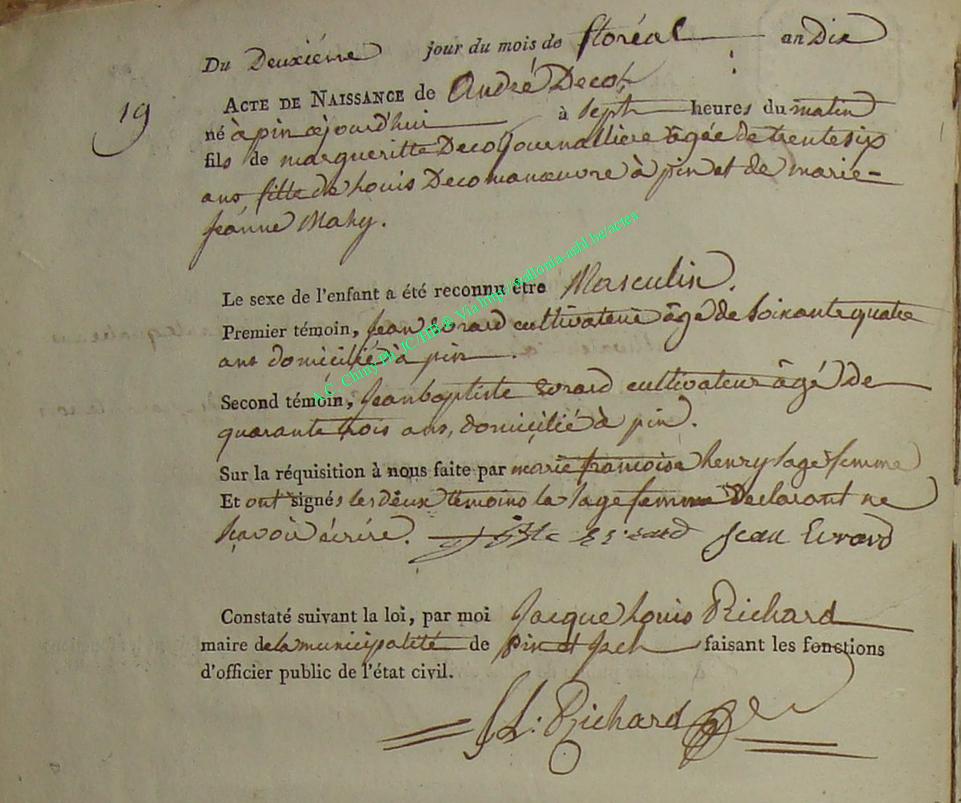 Du Deuxiéme jour du mois de floréal an Dix
19
ACTE DE NAISSANCE de André Decot
né à pin ajourd'hui à sept heures du matin
fils de margueritte Deco journalliere agée de trente six
ans fille de Louis Deco manœuvre à pin et de marie-
jeanne Mahy.
Le sexe de l'enfant a été reconnu être Masculin.
Premier témoin, Jean Evrard cultivateur âgé de soixante quatre
ans domicilié à pin.
Second témoin, Jean baptiste Evrard cultivateur âgé de
quarante trois ans, domicilié à pin.
Sur la réquisition à nous faite par marie françoise henry sage femme
Et ont signés les deux témoins la sage femme Declarant ne
sçavoir écrire. Evrard Jean Evrard
Constaté suivant la loi, par moi Jacque Louis Richard
maire de la municipalité de pin et faisant les fonctions
d'officier public de l'état civil.
J L. Richard
A.C. Chiny Via http://wallonia-asbl.be/actes